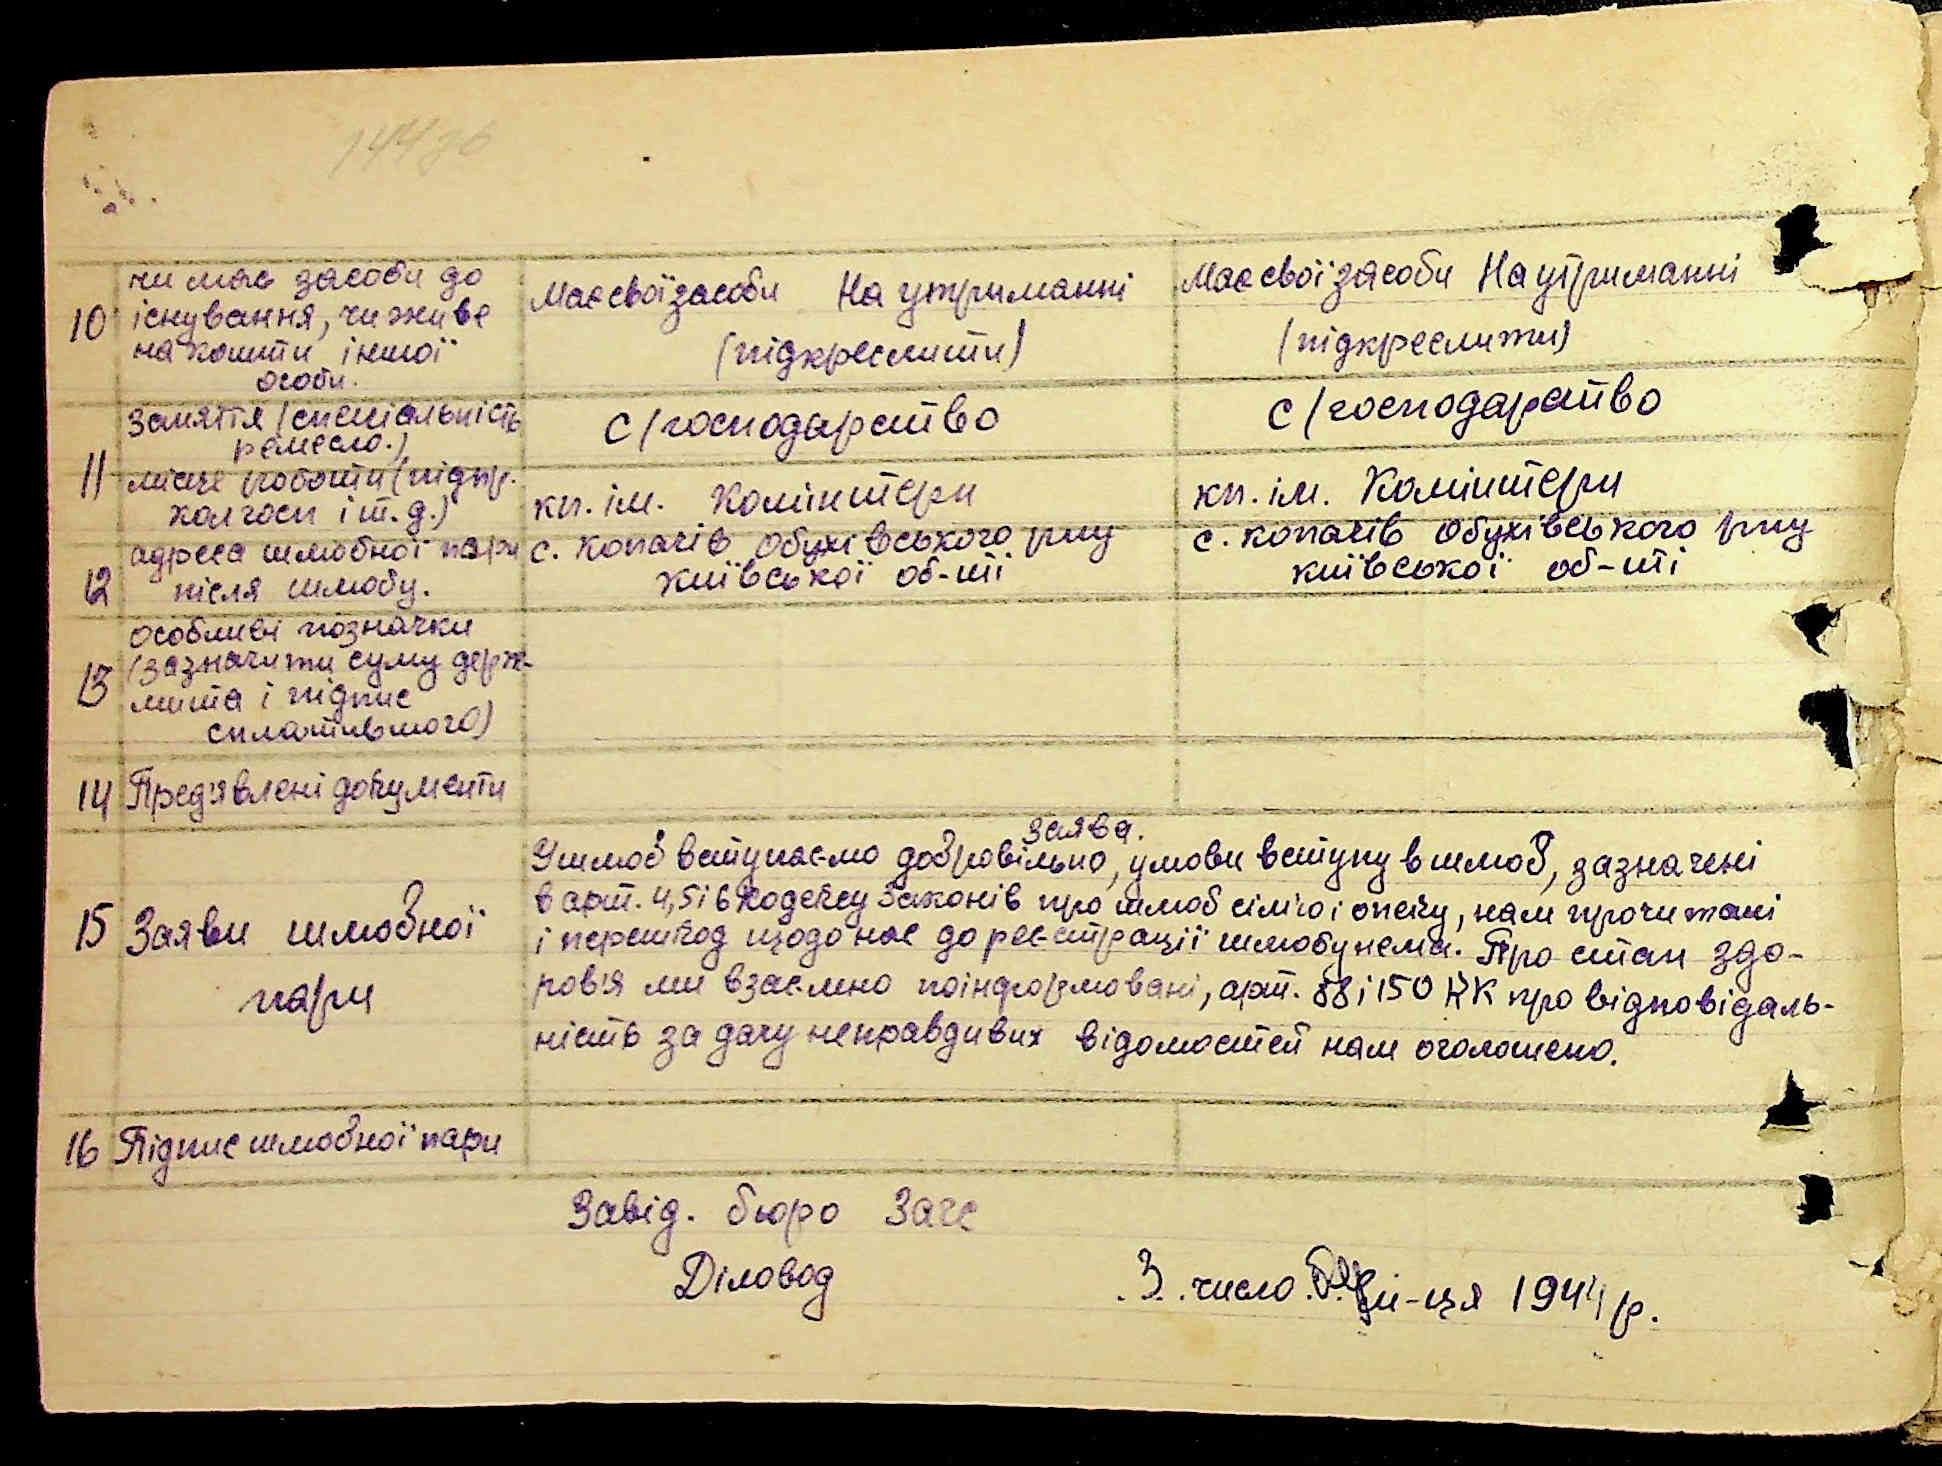 144зв
чи має засоби до
10 існування, чи живе
на кошти іншої
особи.
Має свої засоби На утриманні
(підкреслити)
Має свої засоби На утриманні
(підкреслити)
Заняття (спеціальність
ремесло.)
с/господарство
с/господарство
11 місце роботи (підпр.
колгосп і т.д.)
кп. ім. Комінтерн
кп. ім. Комінтерн
адреса шлюбної пари
12 після шлюбу.
с. Копачів Обухівського р-ну
київської об-ті
с. копачів Обухівського р-ну
київської об-ті
особливі позначки
(зазначити суму держ-
13 мита і підпис
сплатившого)
14 Пред'явлені документи
Заява.
15 Заяви шлюбної
пари
У шлюб вступаємо добровільно, умови вступу в шлюб, зазначені
в арт. 4,5 і 6 Кодексу Законів про шлюб сім'ю і опіку, нам прочитані
і перешкод щодо нас до реєстрації шлюбу нема. Про стан здо-
ров'я ми взаємно поінформовані, арт. 88 і 150 КК про відповідаль-
ність за дачу неправдивих відомостей нам оголошено.
16 Підпис шлюбної пари
Завід. бюро Загс
Діловод
.3. число. м-ця 1944 р.